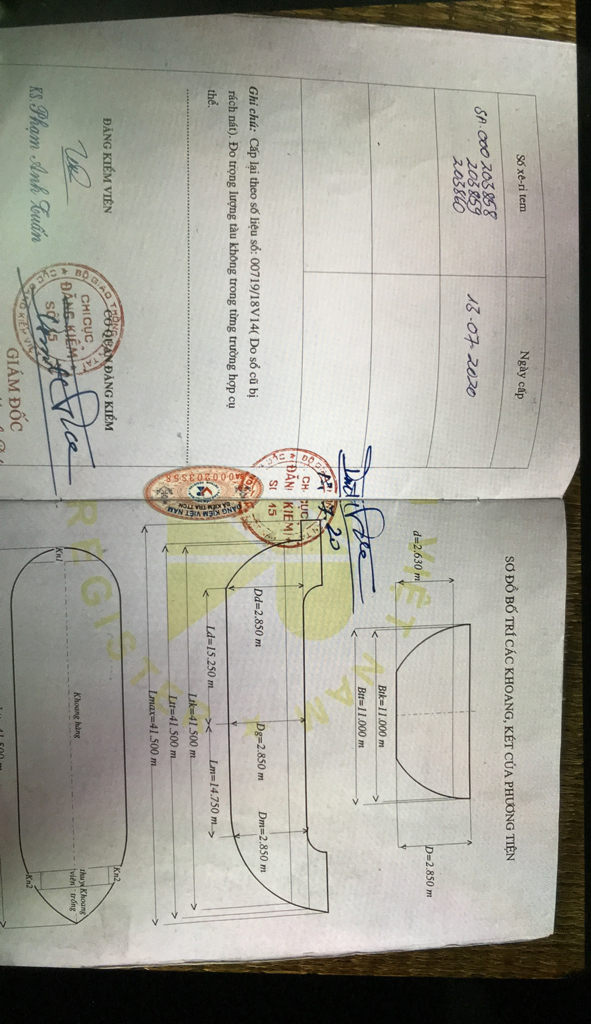 Số xê-ri tem
Ngày cấp
SA.000 203858
203859
203860
13.07.2020
Ghi chú: Cấp lại theo số liệu số: 00719/18V14( Do sổ cũ bị
rách nát). Đo trọng lượng tàu không trong từng trường hợp cụ
thể.
ĐĂNG KIỂM VIÊN
CƠ QUAN ĐĂNG KIỂM
KS. Phạm Anh Tuấn
BỘ GIAO THÔNG
CHI CỤC
ĐĂNG KIỂM
SỐ 15
GIÁM ĐỐC
CHI CỤC
ĐĂNG KIỂM
SỐ 15
000203858
ĐĂNG KIỂM VIỆT NAM
VIỆT NAM
REGISTER
SƠ ĐỒ BỐ TRÍ CÁC KHOANG, KÉT CỦA PHƯƠNG TIỆN
d=2.630 m
Btk=11.000 m
Btt=11.000 m
D=2.850 m
Dd=2.850 m
Dg=2.850 m
Dm=2.850 m
Ld=15.250 m
Lm=14.750 m
Ltk=41.500 m
Ltt=41.500 m
Lmax=41.500 m
Kn1
Khoang hàng
Kn2
thuyền viên
Khoang trống
Kn2